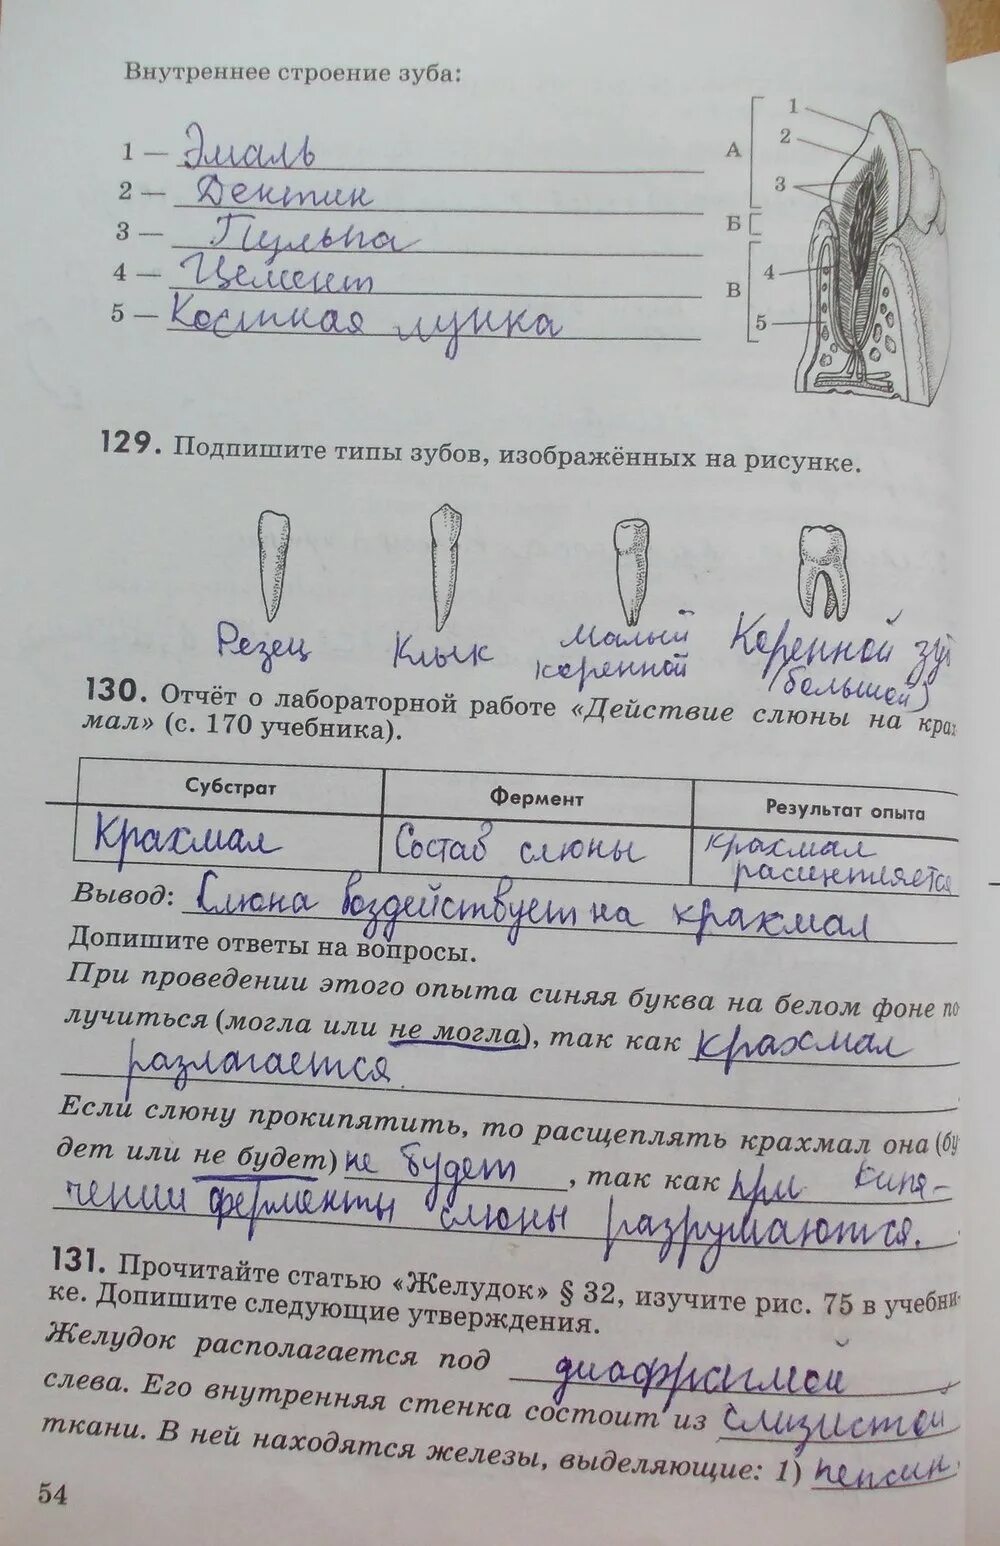 Внутреннее строение зуба:
1 — Эмаль
2 — Дентин
3 — Пульпа
4 — Цемент
5 — Костная лунка
1
2
3
4
5
А
Б
В
129. Подпишите типы зубов, изображённых на рисунке.
Резец
Клык
Малый коренной
Коренной зуб (большой)
130. Отчёт о лабораторной работе «Действие слюны на крах
мал» (с. 170 учебника).
Субстрат Фермент Результат опыта
Крахмал Состав слюны крахмал расщепляется
Вывод: Слюна воздействует на крахмал
Допишите ответы на вопросы.
При проведении этого опыта синяя буква на белом фоне по
лучиться (могла или не могла), так как крахмал
разлагается
Если слюну прокипятить, то расщеплять крахмал она (бу
дет или не будет) не будет, так как при кипя-
чении ферменты слюны разрумаются.
131. Прочитайте статью «Желудок» § 32, изучите рис. 75 в учебни-
ке. Допишите следующие утверждения.
Желудок располагается под диафрагмой
слева. Его внутренняя стенка состоит из слизистой
ткани. В ней находятся железы, выделяющие: 1) пепсин
54